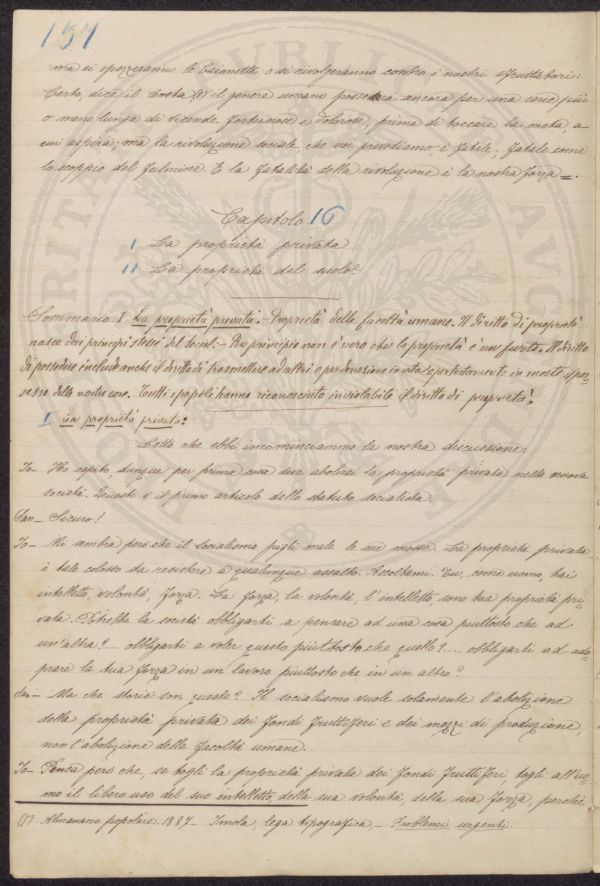 157
ma si spezzeranno le baionette, o si rivolgeranno contro i nostri sfruttatori:
Certo, dice il Costa (1) il genere umano passerà ancora per una serie più
o meno lunga di vicende fortunose e dolorose, prima di toccare la meta, a
cui aspira; ma la rivoluzione sociale, che noi prevediamo è fatale, fatale come
lo scoppio del fulmine. E la fatalità della rivoluzione è la nostra forza =.
Capitolo 16
I La proprietà privata
II La proprietà del suolo.
Sommario I La proprietà privata. - Proprietà delle facoltà umane. Il diritto di proprietà
nasce dai principi stessi dei social. - Per principio non è vero che la proprietà è un furto. Il diritto
di possedere include anche il diritto di trasmettere ad altri o per donazione in vita o per testamento in morte il pos-
sesso delle nostre cose. Tutti i popoli hanno riconosciuto inviolabile il diritto di proprietà.
I La proprietà privata:
Letto che ebbi incominciammo la nostra discussione:
Io - Ho capito dunque per prima cosa deve abolirsi la proprietà privata nella nuova
società. Questo è il primo articolo dello statuto socialista.
San - Sicuro!
Io - Mi sembra però che il socialismo pigli male le sue mosse. La proprietà privata
è tale colosso da resistere a qualunque assalto. Ascoltami. Tu, come uomo, hai
intelletto, volontà, forza. La forza, la volontà, l'intelletto, sono tua proprietà pri-
vata. Potrebbe la società obbligarti a pensare ad una cosa piuttosto che ad
un'altra?.... obbligarti a voler questo piuttosto che quello?.... obbligarti ad ado-
prare la tua forza in un lavoro piuttosto che in un altro?
San - Ma che storie son queste? Il socialismo vuole solamente l'abolizione
della proprietà privata dei fondi fruttiferi e dei mezzi di produzione,
non l'abolizione delle facoltà umane.
Io - Pensa però che, se togli la proprietà privata dei fondi fruttiferi, togli all'uo-
mo il libero uso del suo intelletto, della sua volontà, della sua forza, perchè
(1) Almanacco popolare 1887 - Imola, lega tipografica, - Problemi urgenti.